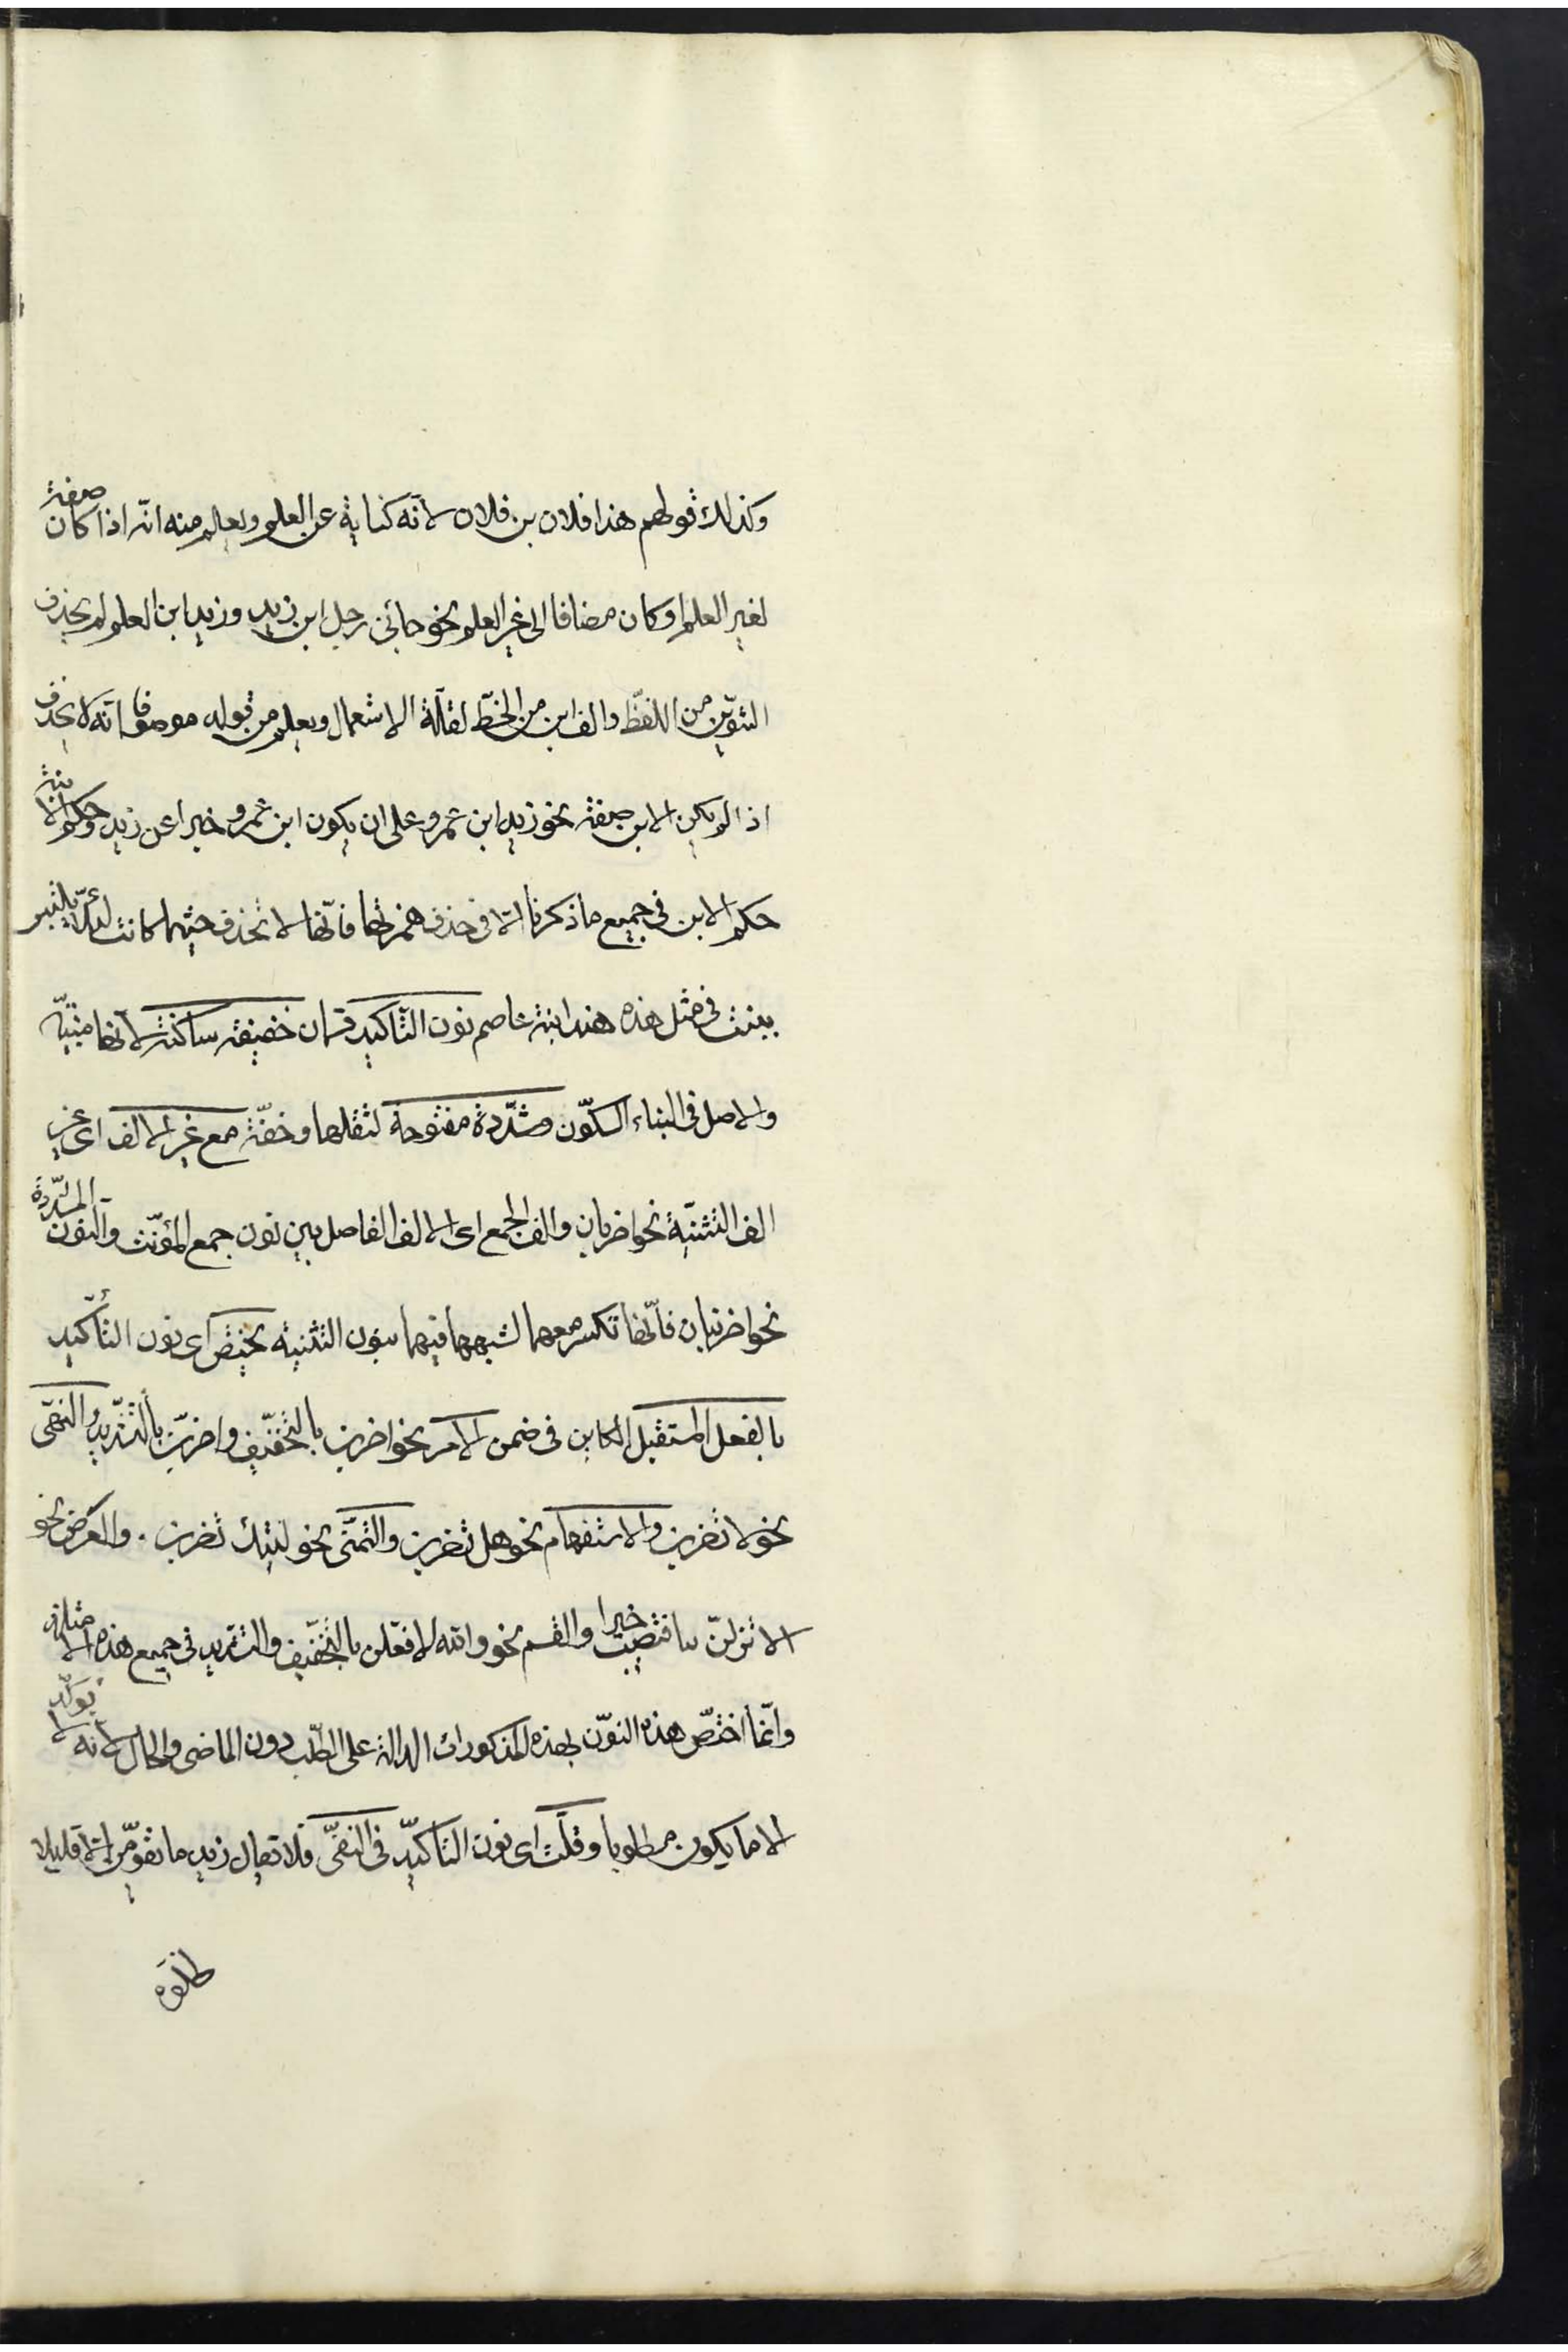 وكذلك قولهم هذا فلان بن فلان لأنه كناية عن العلم ويعلم منه انه اذا كان صفة
لغير العلم او كان مضافا الى غير العلم نحو جائني رجل ابن زيد وزيد ابن العلم لم يحذف
التنوين من اللفظ والف ابن من الخط لقلة الاستعمال ويعلم من قوله موصوفا انه لا يحذف
اذا لم يكن الابن صفة نحو زيد ابن عمرو على ان يكون ابن عمرو خبرا عن زيد وحكم الابنة
حكم الابن في جميع ما ذكرنا الا في حذف همزتها فانها لا تحذف حيثما كانت لئلا يلتبس
ببنت في مثل هذه هند ابنة عاصم نون التأكيد قسمان خفيفة ساكنة لأنها مبنية
والاصل في البناء السكون ومشددة مفتوحة لثقلها وخفة مع غير الالف اى غير
الف التثنية نحو اضربان والف الجمع اى الالف الفاصل بين نون جمع المؤنث والنون المشددة
نحو اضربنان فانها تكسر معهما لشبهها فيهما بنون التثنية يختص اى نون التأكيد
بالفعل المستقبل الكاين في ضمن الامر نحو اضربن بالتخفيف واضربن بالتشديد والنهى
نحو لا تضربن والاستفهام نحو هل تضربن والتمنى نحو ليتك تضربن . والعرض نحو
الا تنزلن بنا فتصيب خيرا والقسم نحو والله لافعلن بالتخفيف والتشديد في جميع هذه الامثلة
وانما اختص هذه النون بهذه المذكورات الدالة على الطلب دون الماضى والحال لأنه لا يؤكد
الا ما يكون مطلوبا وقلت اى نون التأكيد في النفى فلا تقال زيد ما تقومن الا قليلا